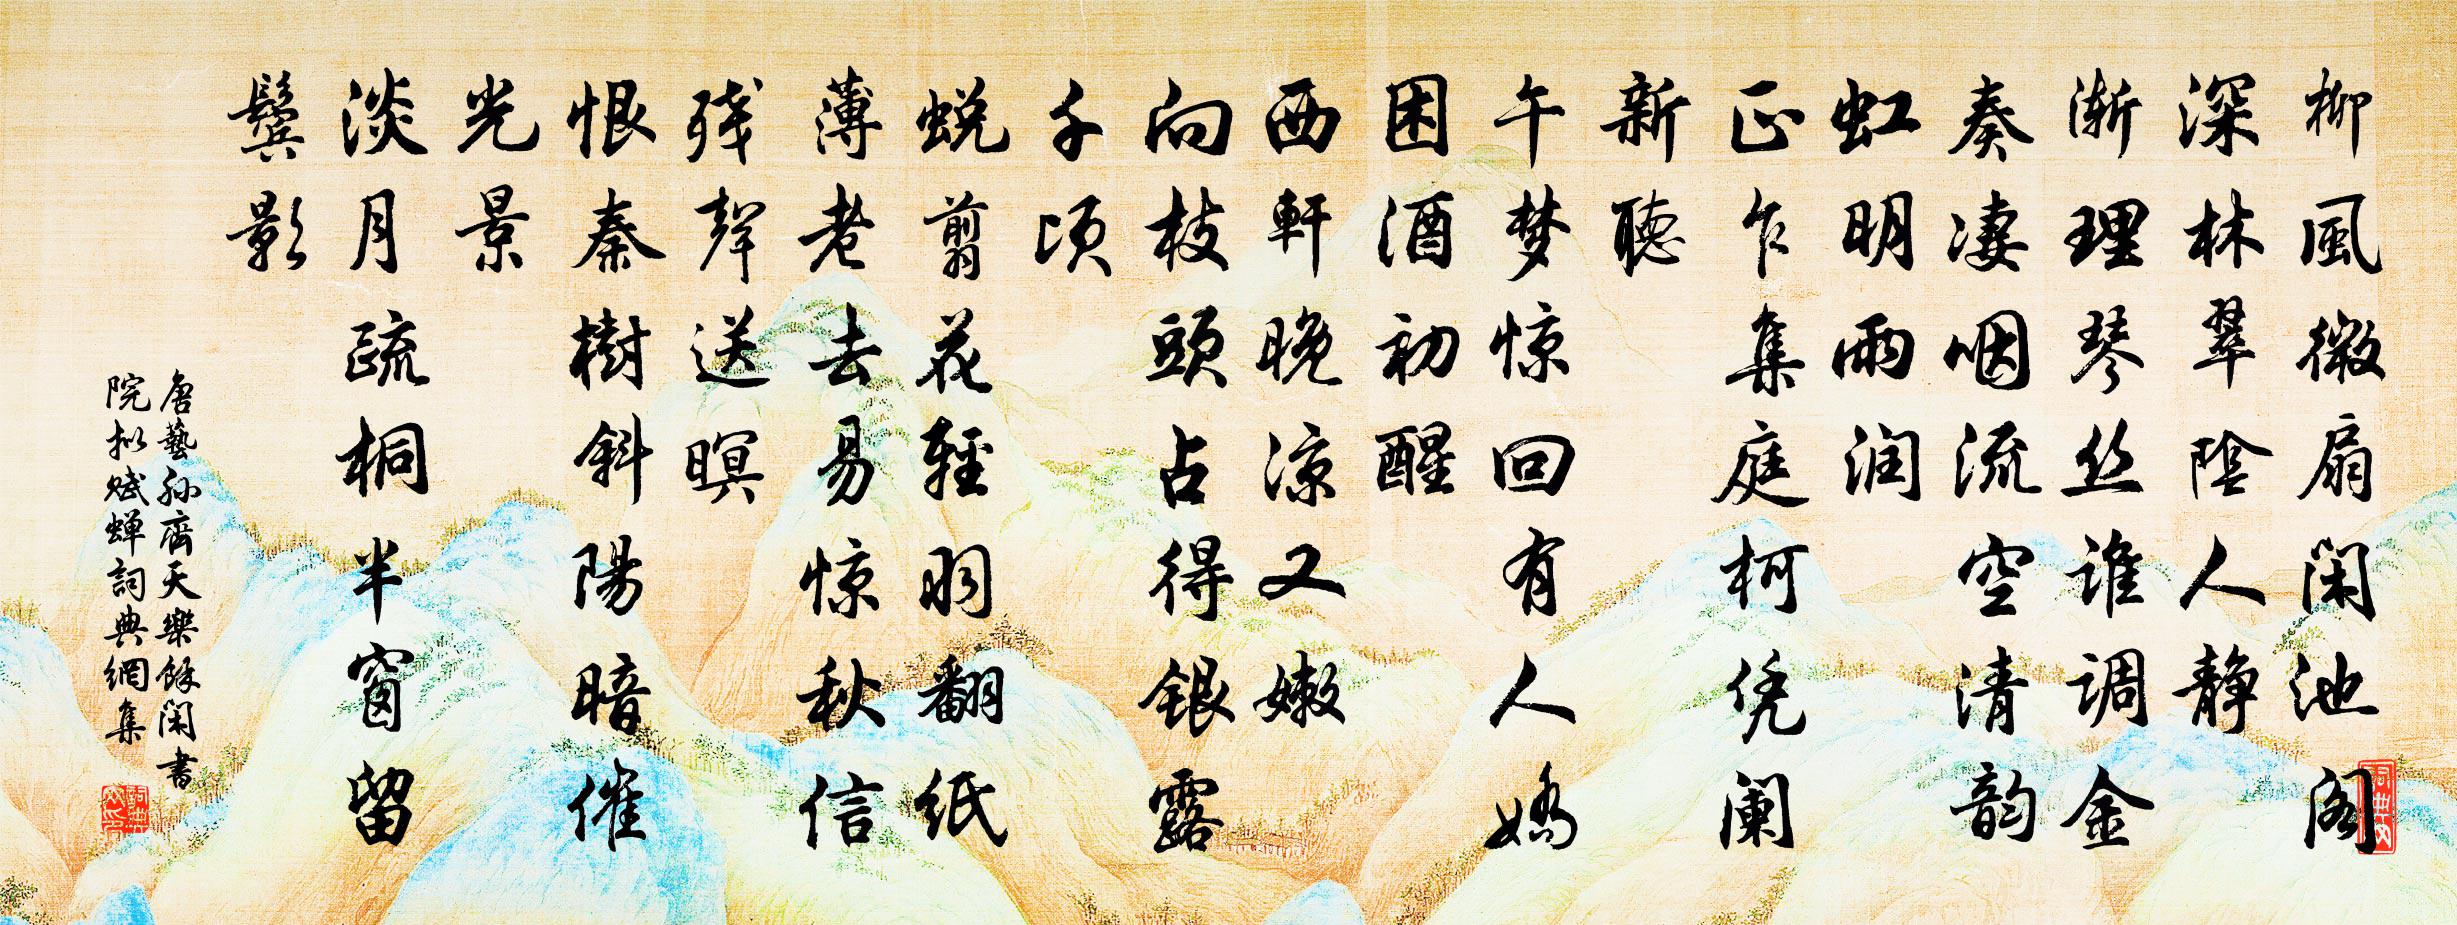 柳風微扇闲池阁
深林翠陰人静
渐理琴丝谁调金
奏凄咽流空清韵
虹明雨润
正乍集庭柯凭阑
新聴
午梦惊回有人嬌
困酒初醒
西軒晚凉又嫩
向枝頭占得银露
千顷
蜕剪花輕羽翻纸
薄老去易惊秋信
残聲送暝
恨秦樹斜陽暗催
光景
淡月疏桐半窗留
鬓影
唐藝孙齊天樂餘闲書
院拟赋蝉詞典網集